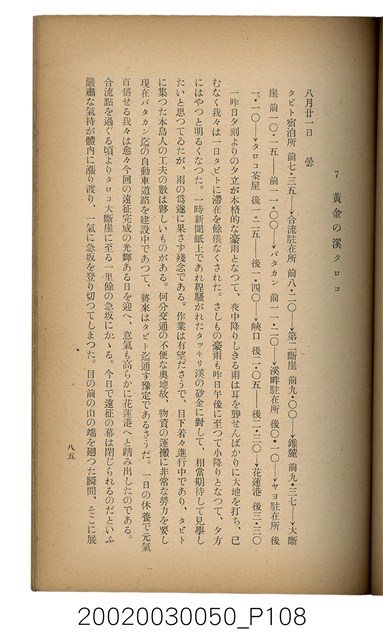 7 黃金の溪タロコ
八月廿一日 曇
タビト宿泊所 前七・三五―→合流駐在所 前八・二〇―→第二斷崖 前九・〇〇―→錐麓 前九・三七―→大斷
崖 前一〇・一五―前一一・〇〇―→バタカン 前一一・二〇―→溪畔駐在所 後〇・一〇―→ヤヨ駐在所 後
一・一〇―→タロコ茶屋 後一・二五―後一・四〇―→峽口 後二・〇五―後二・三〇―→花蓮港 後三・三〇
一昨日夕刻よりの夕立が本格的な豪雨となつて、夜中降りしきる雨は耳を聾せんばかりに大地を打ち、已
むなく我々は一日タビトに滯在を餘儀なくされた。さしもの豪雨も昨日午後に至つて小降りとなつて、夕方
にはやつと明るくなつた。一時新聞紙上であれ程騷がれたタッキリ溪の砂金に對して、相當期待して見學し
たいと思つてゐたが、雨の爲遂に果さず殘念である。作業は有望ださうで、目下着々進行中であり、タビト
に集つた本島人の工夫の數は夥しいものがある。何分交通の不便な奥地故、物資の運搬に非常な勞力を要し
現在バタカン迄の自動車道路を建設中であつて、將來はタビト迄通す豫定であるさうだ。一日の休養で元氣
百倍せる我々は愈々今回の遠征完成の光輝ある日を迎へ、意氣も高らかに花蓮港へと踏み出したのである。
合流點を過ぐる頃よりタロコ大斷崖に至る一里餘の急坂にかゝる。今日で遠征の幕は閉じられるのだといふ
嚴肅な氣持が體内に漲り渡り、一氣に急坂を登り切つてしまつた。目の前の山の端を廻つた瞬間、そこに展
八五
20020030050_P108